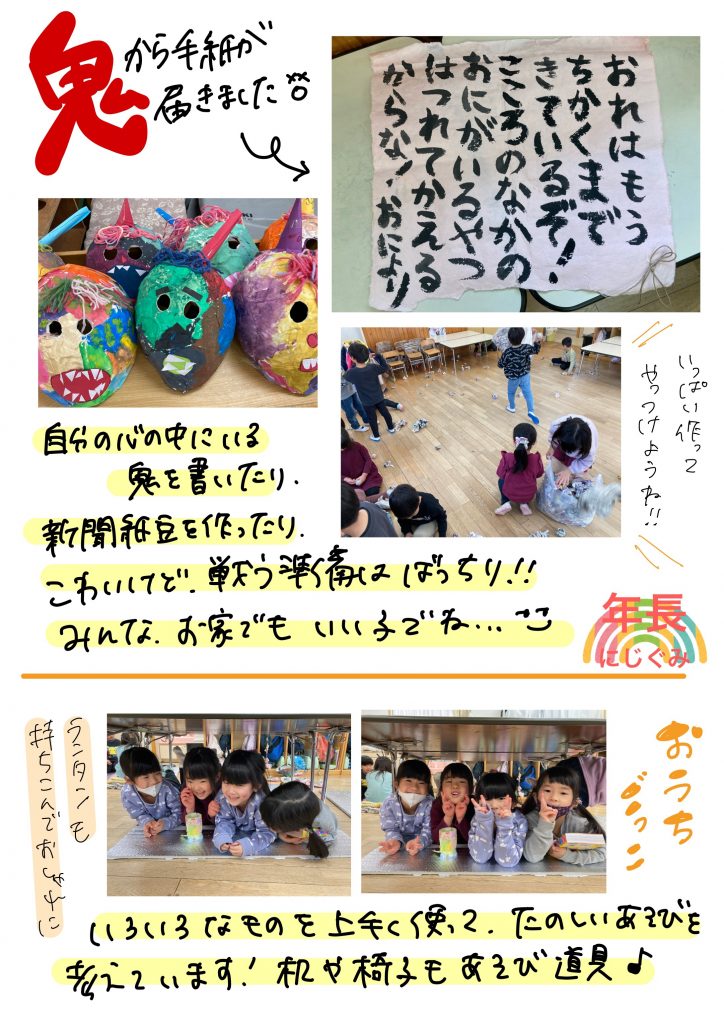 鬼から手紙が
届きました
おれはもう
ちかくまで
きているぞ!
こころのなかの
おにがいるやつ
はつれてかえる
からな!おにより
いっぱい作って
やっつけようね!!
自分の心の中にいる
鬼を書いたり、
新聞紙豆を作ったり、
こわいけど、戦う準備はばっちり!!
みんな、お家でもいい子でね…
年長
にじぐみ
おうち
ごっこ
ランタンも
持ちこんでおしゃれに
いろいろなものを上手く使って、たのしいあそびを
考えています!机や椅子もあそび道具♪